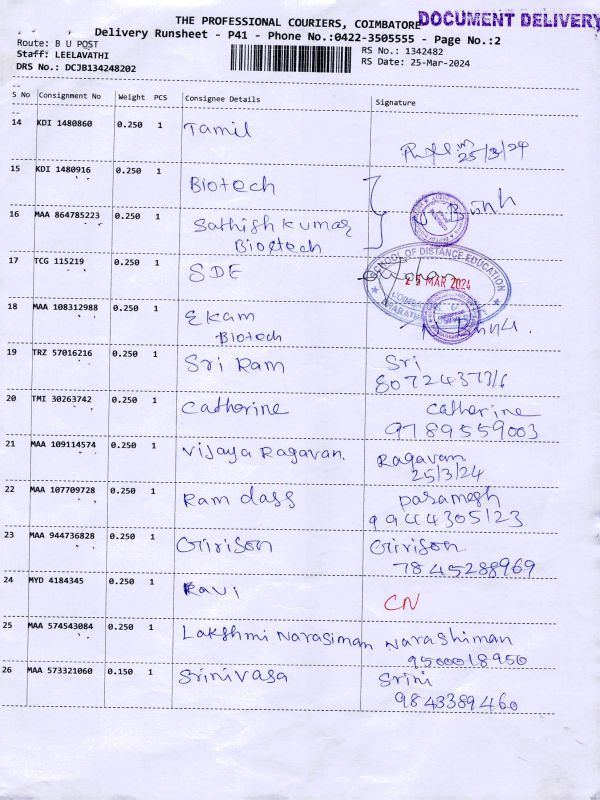 THE PROFESSIONAL COURIERS, COIMBATORE
DOCUMENT DELIVERY
Delivery Runsheet - P41 - Phone No.:0422-3505555 - Page No.:2
Route: B U POST
RS No.: 1342482
Staff: LEELAVATHI
RS Date: 25-Mar-2024
DRS No.: DCJB134248202
S No Consignment No Weight PCS Consignee Details Signature
14 KDI 1480860 0.250 1 Tamil
25/3/24
15 KDI 1480916 0.250 1 Biotech
16 MAA 864785223 0.250 1 Sathish kumar
Biotech
17 TCG 115219 0.250 1 SDE
SCHOOL OF DISTANCE EDUCATION
25 MAR 2024
18 MAA 108312988 0.250 1 Ekam
Biotech
19 TRZ 57016216 0.250 1 Sri Ram Sri
20 TMI 30263742 0.250 1 Catherine Catherine
9789559003
21 MAA 109114574 0.250 1 Vijaya Ragavan. Ragavan
25/3/24
22 MAA 107709728 0.250 1 Ram dass Paramesh
9944305123
23 MAA 944736828 0.250 1 Girison Girison.
7845288969
24 MYD 4184345 0.250 1 Ravi CN
25 MAA 574543084 0.250 1 Lakshmi Narasiman Narashiman
9500018950
26 MAA 573321060 0.150 1 Srinivasa Srini
9843389460